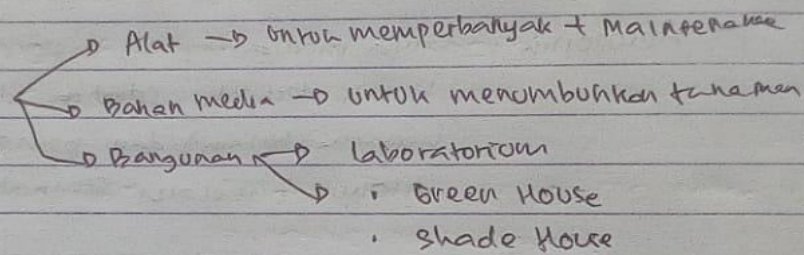 Alat → untuk memperbanyak + Maintenance
Bahan media → untuk menumbuhkan tanaman
Bangunan → laboratorium
→ • Green House
• Shade House